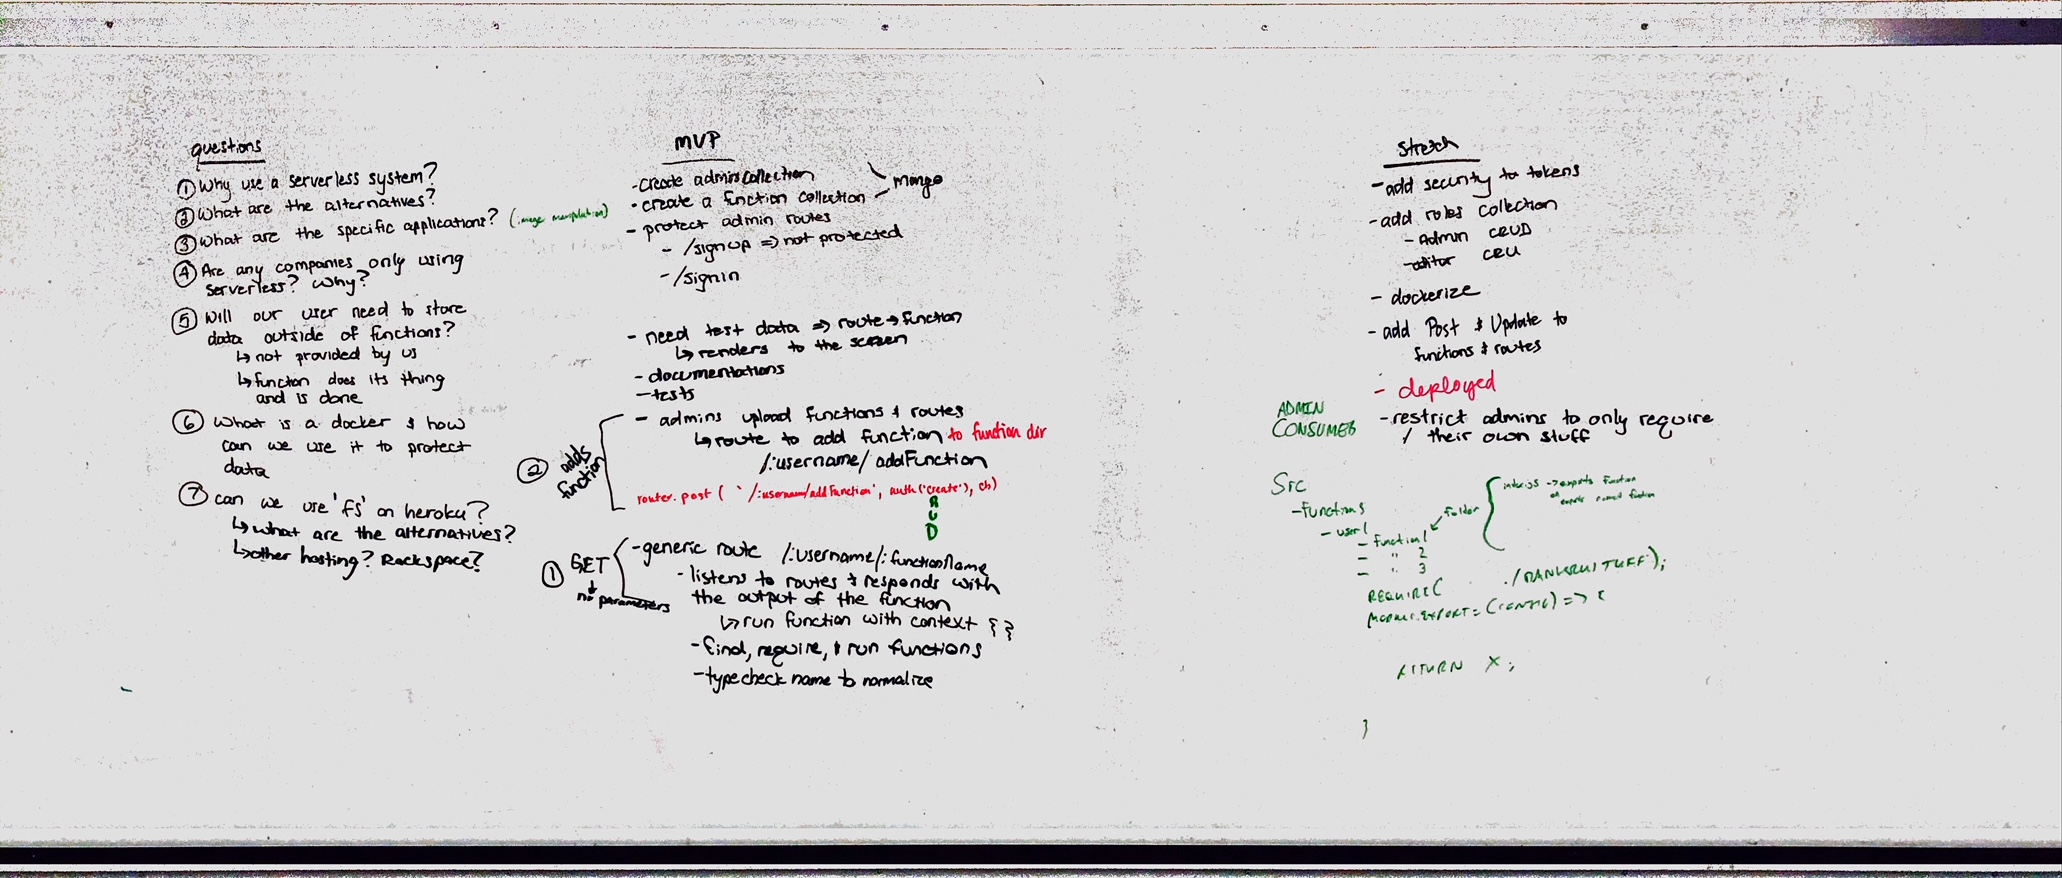 questions
① Why use a serverless system?
② What are the alternatives?
③ What are the specific applications? (image manipulation)
④ Are any companies only using
serverless? Why?
⑤ Will our user need to store
data outside of functions?
↳ not provided by us
↳ function does its thing
and is done
⑥ What is a docker & how
can we use it to protect
data
⑦ can we use 'fs' on heroku?
↳ what are the alternatives?
↳ other hosting? Rackspace?
MVP
- create admin collection
- create a function collection
> mongo
- protect admin routes
- /signup => not protected
- /signin
- need test data => route → function
↳ renders to the screen
- documentations
- tests
② adds
function
- admins upload functions & routes
↳ route to add function to function dir
/:username/addFunction
router.post( `/:username/addFunction', auth('create'), cb)
R
U
D
① GET
↓
no parameters
- generic route /:username/:functionName
- listens to routes & responds with
the output of the function
↳ run function with context { }
- find, require, & run functions
- typecheck name to normalize
Stretch
- add security to tokens
- add roles collection
- Admin CRUD
- editor CRU
- dockerize
- add Post & Update to
functions & routes
- deployed
- restrict admins to only require
/ their own stuff
ADMIN
CONSUMER
Src
- functions
- user1
- function1
- " 2
- " 3
↙ folder
→ exports function
or exports named function
REQUIRE(
MODULE.EXPORT = (CONFIG) => {
RETURN X;
}